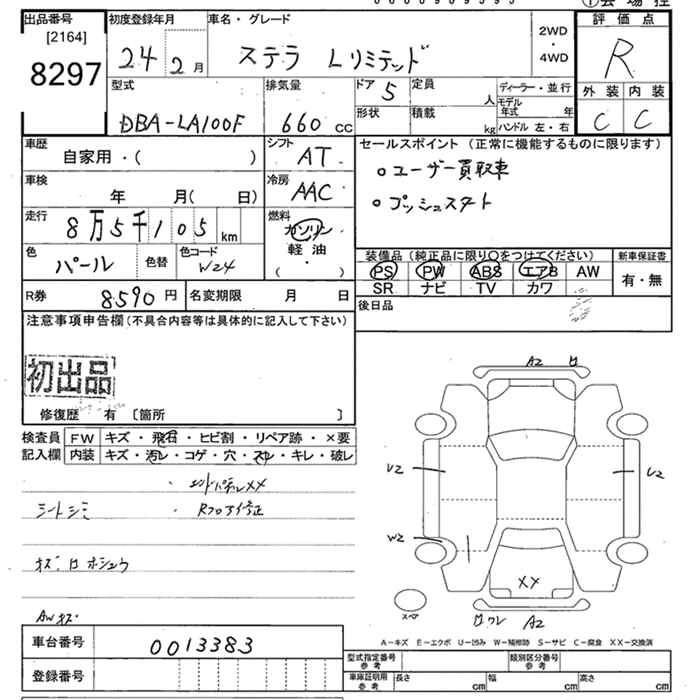 出品番号
[2164]
8297
初度登録年月
24 2月
車名・グレード
ステラ Lリミテッド
2WD
・
4WD
評価点
R
外装 内装
C C
型式
DBA-LA100F
排気量
660 CC
ドア
5
定員
人
形状
積載
kg
ディーラー・並行
モデル年式 年
ハンドル 左・右
車歴
自家用・( )
シフト
AT
セールスポイント (正常に機能するものに限ります)
○ユーザー買取車
○プッシュスタート
車検
年 月( 日)
冷房
AAC
走行
8万5千105km
燃料
ガソリン
軽油
( ・ )
色
パール
色替
色コード
W24
装備品 (純正品に限り○をつけてください)
PS PW ABS エアB AW
SR ナビ TV カワ
新車保証書
有・無
R券
8590円
名変期限 月 日
後日品
注意事項申告欄(不具合内容等は具体的に記入して下さい)
初出品
修復歴 有 〔箇所 〕
検査員
記入欄
FW キズ・飛石・ヒビ割・リペア跡・×要
内装 キズ・汚レ・コゲ・穴・スレ・キレ・破レ
・エンドパネルXX
シートシミ
・Rフロア修正
AWキズ
A2
U2
U2
W2
XX
スペア
ワレ A2
A-キズ E-エクボ U-凹み W-補修跡 S-サビ C-腐食 XX-交換済
車台番号
0013383
登録番号
型式指定番号
参考
類別区分番号
参考
車庫証明用
参考
長さ cm
幅 cm
高さ cm